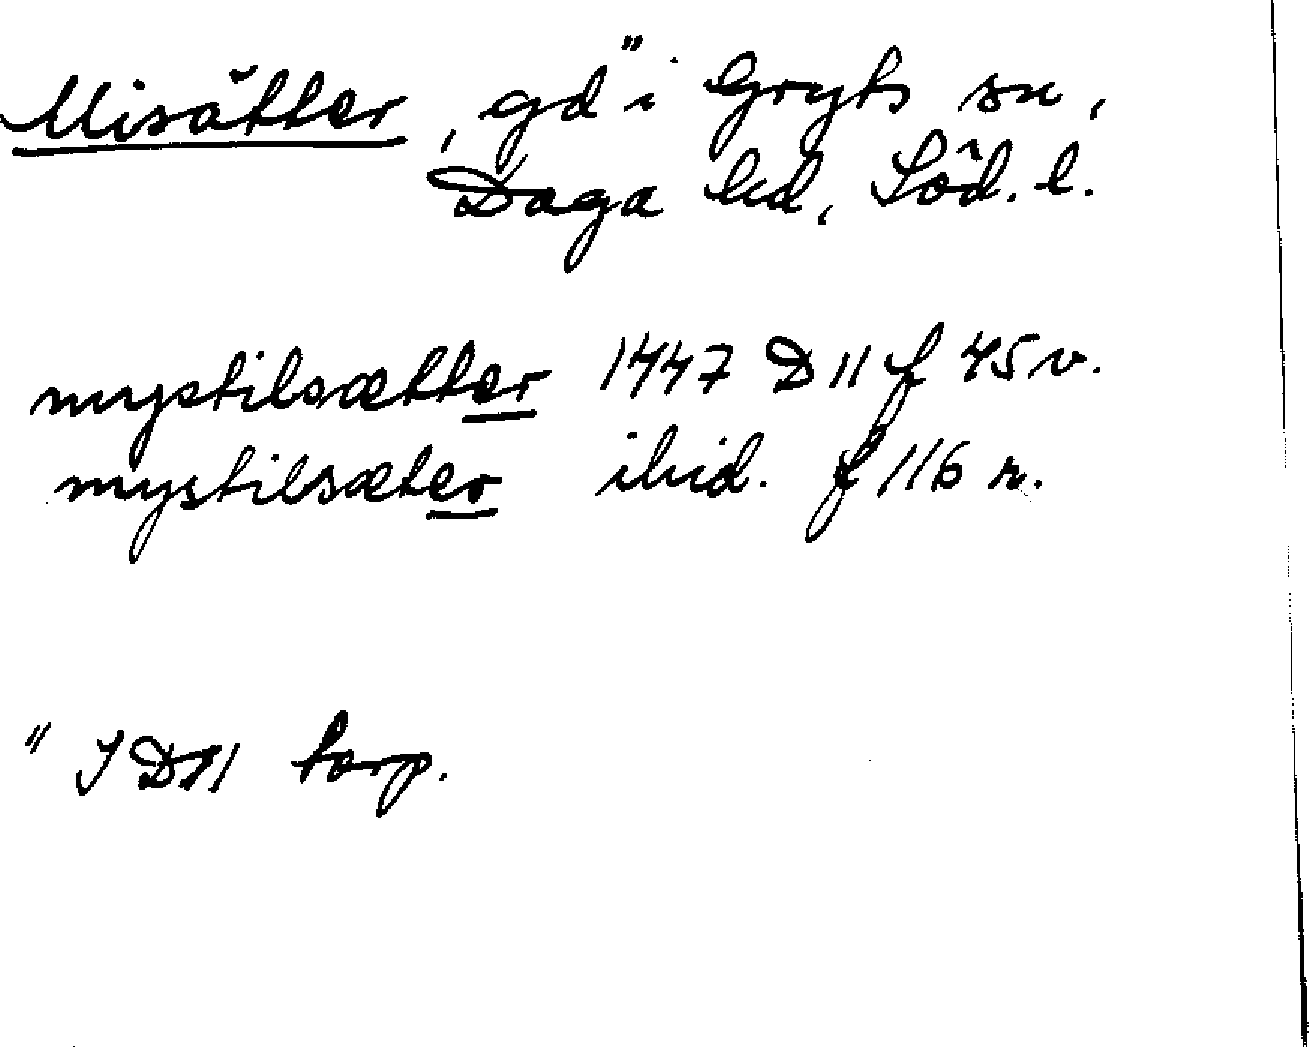 Misätter, gd¹⁾ i Gryts sn,
Daga hd, Söd. l.
mystilsætter 1447 D 11 f 45 v.
mystilsæter ibid. f 116 r.
¹⁾ I D 11 torp.